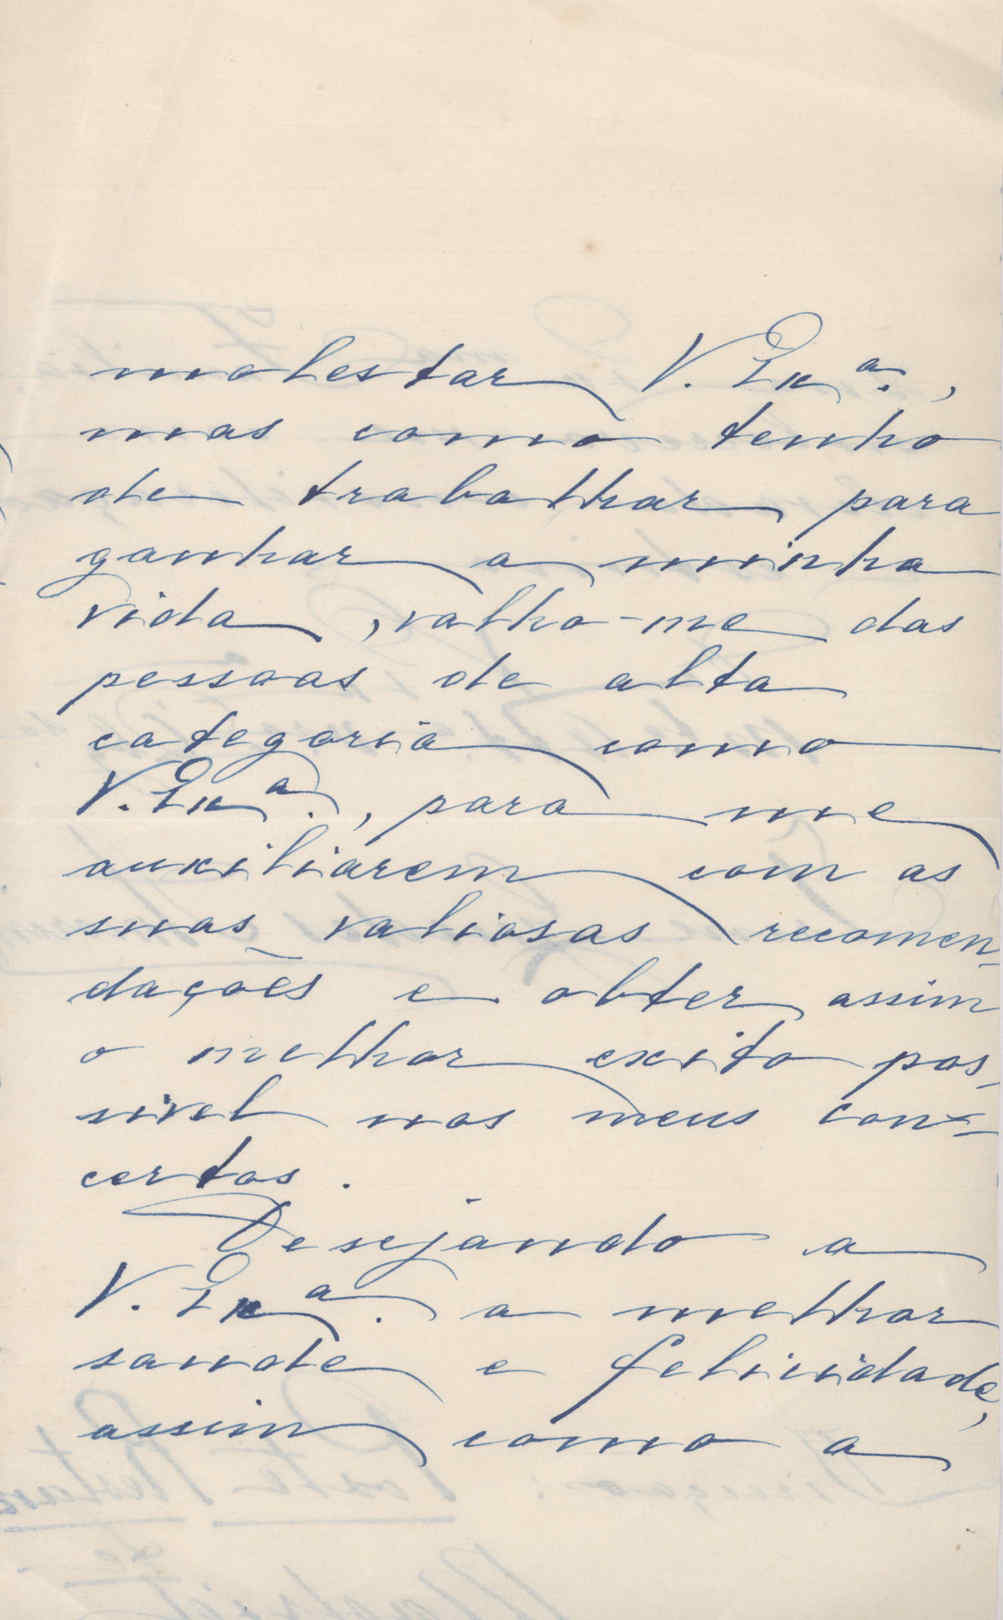 molestar V. Exª.,
mas como tenho
de trabalhar para
ganhar a minha
vida, valho-me das
pessoas de alta
categoria como
V. Exª., para me
auxiliarem com as
suas valiosas recomen-
dações e obter assim
o melhor exito pos-
sivel nos meus con-
certos.
Desejando a
V. Exª. a melhor
saude e felicidade,
assim como a